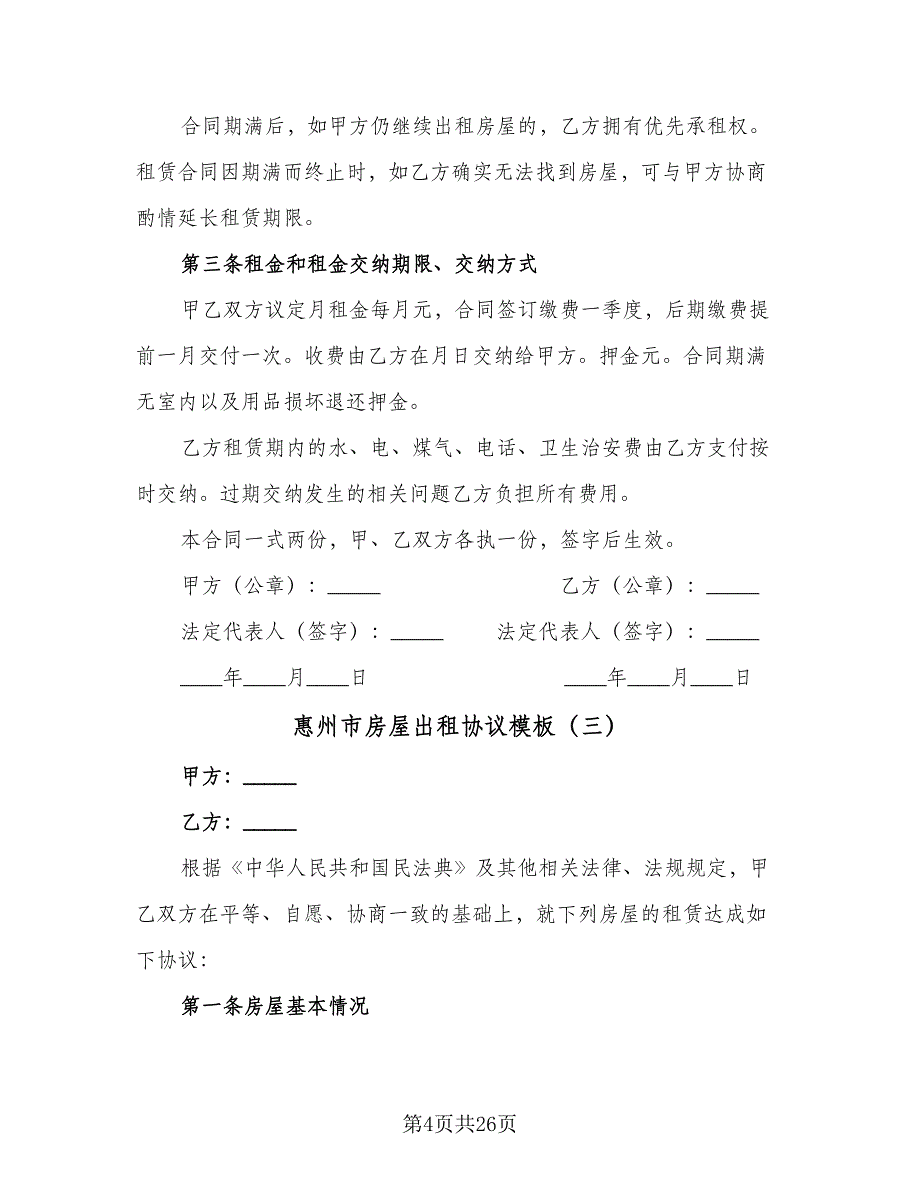 合同期满后，如甲方仍继续出租房屋的，乙方拥有优先承租权。
租赁合同因期满而终止时，如乙方确实无法找到房屋，可与甲方协商
酌情延长租赁期限。
第三条租金和租金交纳期限、交纳方式
甲乙双方议定月租金每月元，合同签订缴费一季度，后期缴费提
前一月交付一次。收费由乙方在月日交纳给甲方。押金元。合同期满
无室内以及用品损坏退还押金。
乙方租赁期内的水、电、煤气、电话、卫生治安费由乙方支付按
时交纳。过期交纳发生的相关问题乙方负担所有费用。
本合同一式两份，甲、乙双方各执一份，签字后生效。
甲方（公章）：_____ 乙方（公章）：_____
法定代表人（签字）：_____ 法定代表人（签字）：_____
____年____月____日 ____年____月____日
惠州市房屋出租协议模板（三）
甲方：_____
乙方：_____
根据《中华人民共和国民法典》及其他相关法律、法规规定，甲
乙双方在平等、自愿、协商一致的基础上，就下列房屋的租赁达成如
下协议：
第一条房屋基本情况
第4页共26页